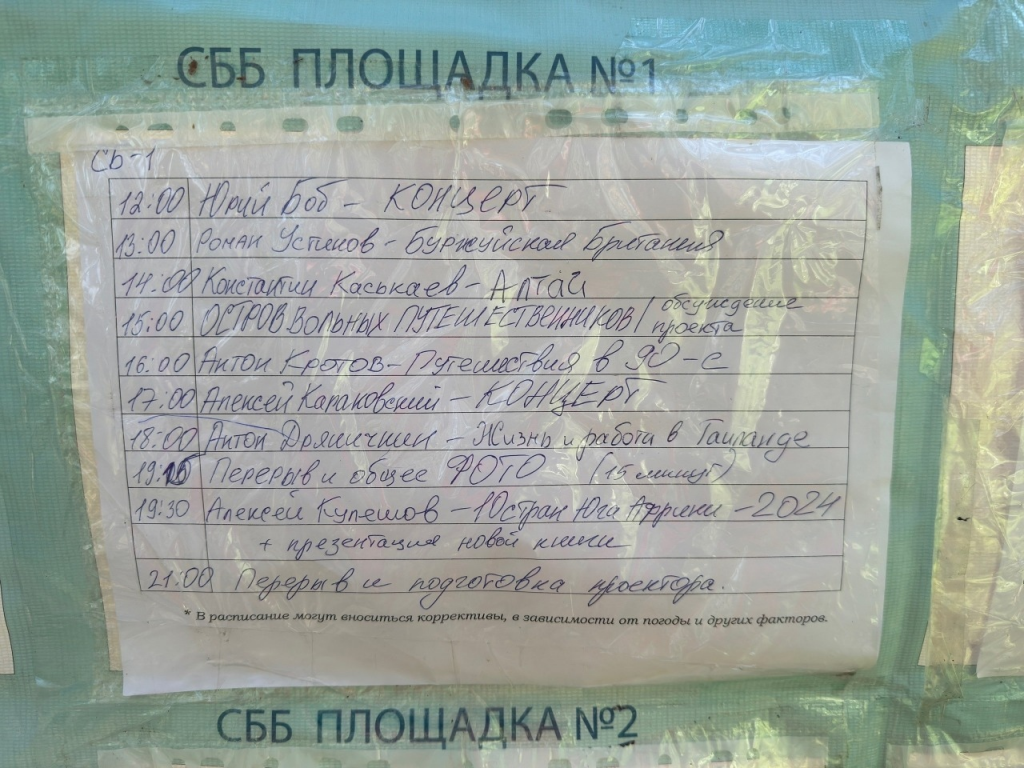 СББ ПЛОЩАДКА №1
Сб-1
12:00 Юрий Боб - КОНЦЕРТ
13:00 Роман Устинов - Буржуйская Британия
14:00 Константин Каськаев - Алтай
15:00 ОСТРОВ ВОЛЬНЫХ ПУТЕШЕСТВЕННИКОВ / обсуждение
проекта
16:00 Антон Кротов - Путешествия в 90-е
17:00 Алексей Караковский - КОНЦЕРТ
18:00 Антон Дряничкин - Жизнь и работа в Таиланде
Перерыв и общее ФОТО (15 минут)
19:30 Алексей Кулешов - 10 стран Юга Африки - 2024
+ презентация новой книги
21:00 Перерыв и подготовка проектора.
* В расписание могут вноситься коррективы, в зависимости от погоды и других факторов.
СББ ПЛОЩАДКА №2